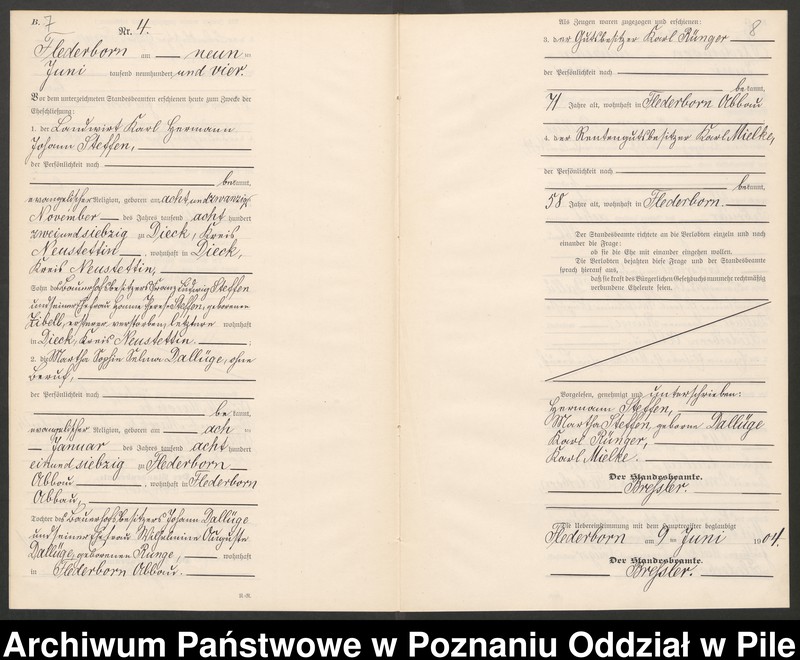 B. 7
Nr. 4.
Flederborn am neun ten
Juni tausend neunhundert und vier.
Vor dem unterzeichneten Standesbeamten erschienen heute zum Zwecke der
Eheschließung:
1. der Landwirt Karl Hermann
Johann Steffen,
der Persönlichkeit nach
be kannt,
evangelischer Religion, geboren am acht und zwanzig
November des Jahres tausend acht hundert
zweiundsiebzig zu Dieck, Kreis
Neustettin, wohnhaft in Dieck,
Kreis Neustettin,
Sohn des Bauerhofsbesitzers Franz Ludwig Steffen
und seiner Ehefrau Hanne Steffen, geborenen
Zibell, ersterer verstorben, letztere wohnhaft
in Dieck, Kreis Neustettin.
2. die Martha Sophie Selma Dallüge, ohne
Beruf,
der Persönlichkeit nach
be kannt,
evangelischer Religion, geboren am ach ten
Januar des Jahres tausend acht hundert
einundsiebzig zu Flederborn
Abbau, wohnhaft in Flederborn
Abbau,
Tochter des Bauerhofsbesitzers Johann Dallüge
und seiner Ehefrau Wilhelmine Auguste
Dallüge, geborenen Runge, wohnhaft
in Flederborn Abbau.
Als Zeugen waren zugezogen und erschienen:
8
3. der Gutsbesitzer Karl Rünger
der Persönlichkeit nach
be kannt,
71 Jahre alt, wohnhaft in Flederborn Abbau
4. der Rentengutsbesitzer Karl Mielke,
der Persönlichkeit nach
be kannt,
58 Jahre alt, wohnhaft in Flederborn.
Der Standesbeamte richtete an die Verlobten einzeln und nach
einander die Frage:
ob sie die Ehe mit einander eingehen wollen.
Die Verlobten bejahten diese Frage und der Standesbeamte
sprach hierauf aus,
daß sie kraft des Bürgerlichen Gesetzbuchs nunmehr rechtmäßig
verbundene Eheleute seien.
Vorgelesen, genehmigt und unterschrieben:
Hermann Steffen,
Martha Steffen, geborne Dallüge
Karl Rünger,
Karl Mielke.
Der Standesbeamte.
Bressler.
Die Uebereinstimmung mit dem Hauptregister beglaubigt
Flederborn am 9. ten Juni 1904.
Der Standesbeamte.
Bressler.
Archiwum Państwowe w Poznaniu Oddział w Pile